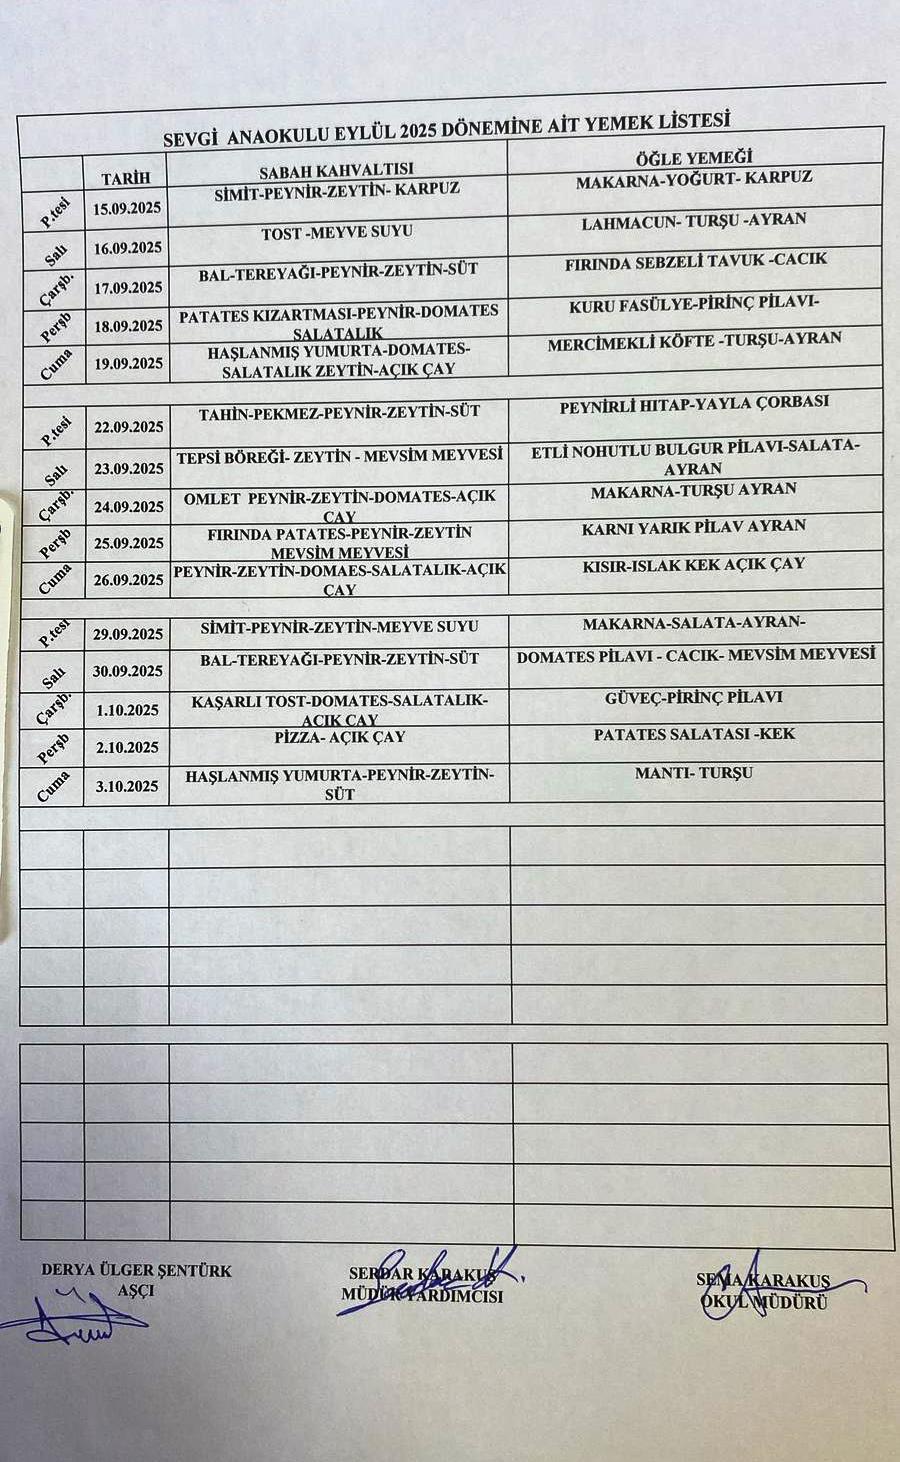 SEVGİ ANAOKULU EYLÜL 2025 DÖNEMİNE AİT YEMEK LİSTESİ
TARİH SABAH KAHVALTISI ÖĞLE YEMEĞİ
P.tesi 15.09.2025 SİMİT-PEYNİR-ZEYTİN- KARPUZ MAKARNA-YOĞURT- KARPUZ
Salı 16.09.2025 TOST -MEYVE SUYU LAHMACUN- TURŞU -AYRAN
Çarşb. 17.09.2025 BAL-TEREYAĞI-PEYNİR-ZEYTİN-SÜT FIRINDA SEBZELİ TAVUK -CACIK
Perşb 18.09.2025 PATATES KIZARTMASI-PEYNİR-DOMATES KURU FASÜLYE-PİRİNÇ PİLAVI-
SALATALIK
Cuma 19.09.2025 HAŞLANMIŞ YUMURTA-DOMATES- MERCİMEKLİ KÖFTE -TURŞU-AYRAN
SALATALIK ZEYTİN-AÇIK ÇAY
P.tesi 22.09.2025 TAHİN-PEKMEZ-PEYNİR-ZEYTİN-SÜT PEYNİRLİ HITAP-YAYLA ÇORBASI
Salı 23.09.2025 TEPSİ BÖREĞİ- ZEYTİN - MEVSİM MEYVESİ ETLİ NOHUTLU BULGUR PİLAVI-SALATA-
AYRAN
Çarşb. 24.09.2025 OMLET PEYNİR-ZEYTİN-DOMATES-AÇIK MAKARNA-TURŞU AYRAN
ÇAY
Perşb 25.09.2025 FIRINDA PATATES-PEYNİR-ZEYTİN KARNI YARIK PİLAV AYRAN
MEVSİM MEYVESİ
Cuma 26.09.2025 PEYNİR-ZEYTİN-DOMAES-SALATALIK-AÇIK KISIR-ISLAK KEK AÇIK ÇAY
ÇAY
P.tesi 29.09.2025 SİMİT-PEYNİR-ZEYTİN-MEYVE SUYU MAKARNA-SALATA-AYRAN-
Salı 30.09.2025 BAL-TEREYAĞI-PEYNİR-ZEYTİN-SÜT DOMATES PİLAVI - CACIK- MEVSİM MEYVESİ
Çarşb. 1.10.2025 KAŞARLI TOST-DOMATES-SALATALIK- GÜVEÇ-PİRİNÇ PİLAVI
AÇIK ÇAY
Perşb 2.10.2025 PİZZA- AÇIK ÇAY PATATES SALATASI -KEK
Cuma 3.10.2025 HAŞLANMIŞ YUMURTA-PEYNİR-ZEYTİN- MANTI- TURŞU
SÜT
DERYA ÜLGER ŞENTÜRK SERDAR KARAKUŞ SEMA KARAKUŞ
AŞÇI MÜDÜR YARDIMCISI OKUL MÜDÜRÜ